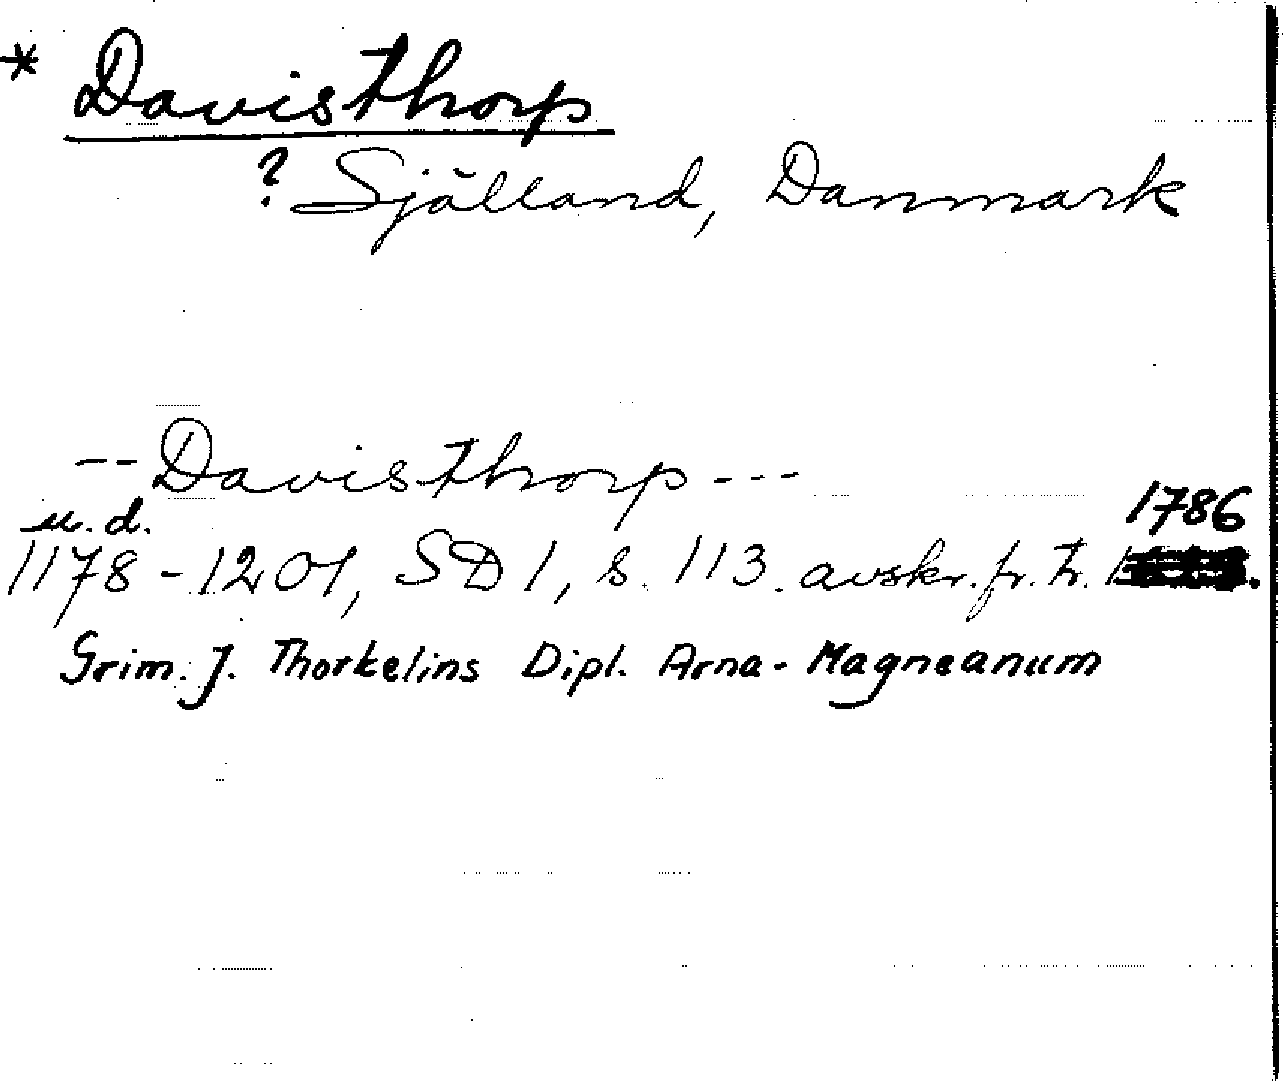 * Davisthorp
? Själland, Danmark
-- Davisthorp ---
u. d.
1786
1178-1201, SD 1, s. 113. avskr. fr. tr.
Grim. J. Thorkelins Dipl. Arna-Magneanum